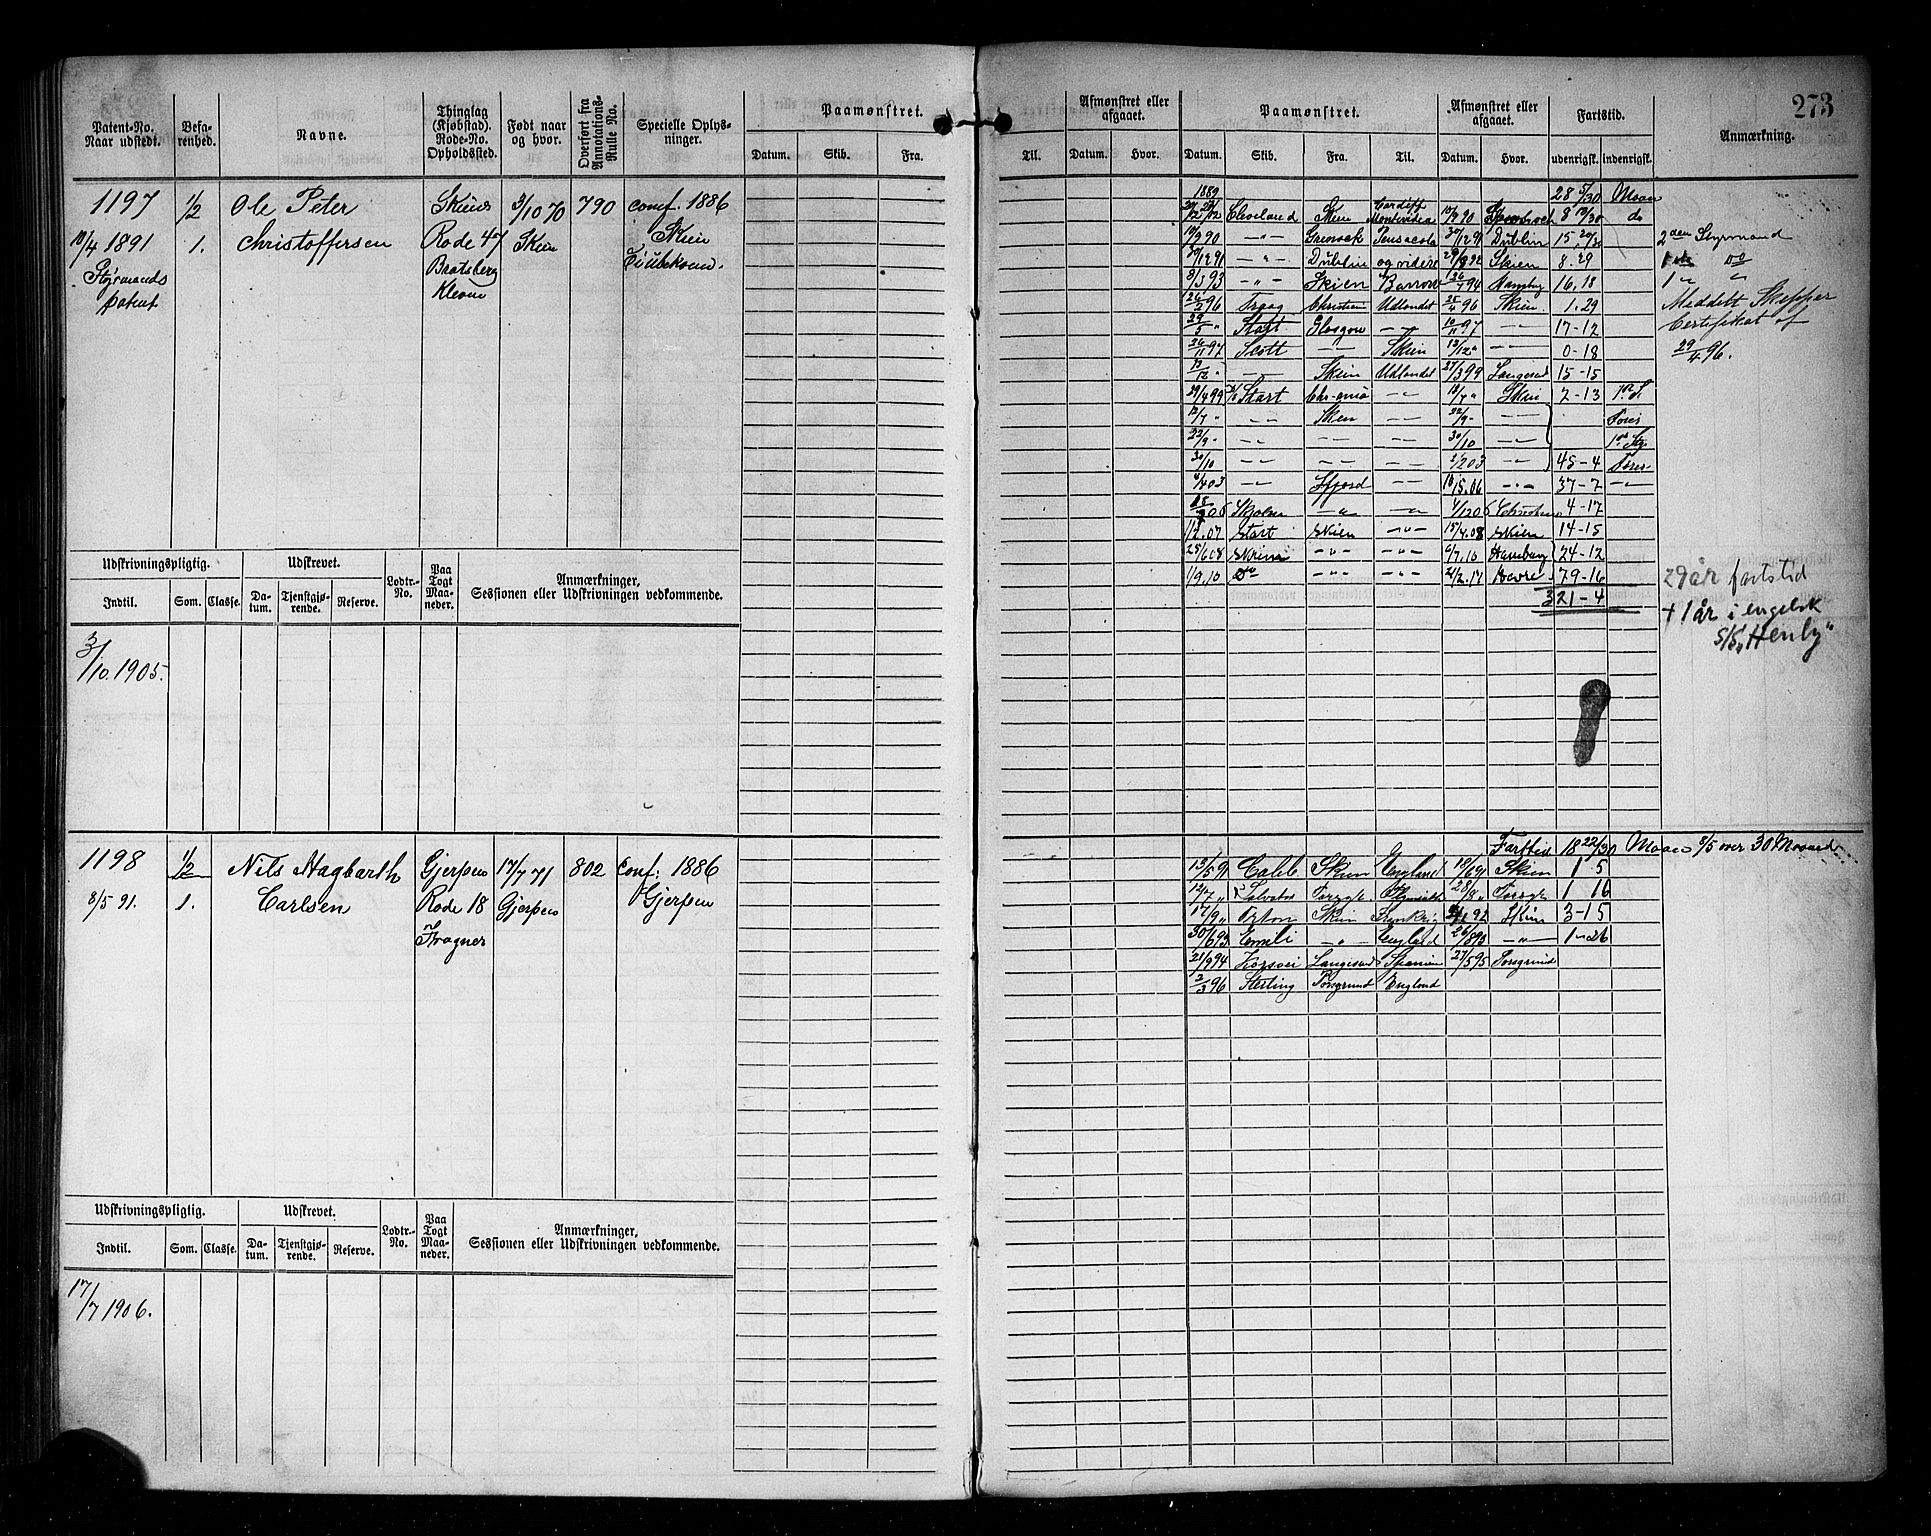 273
Patent-No. Naar udstedt.
Befarenhed.
Navne.
Thinglag (Kjøbstad). Rode-No. Opholdssted.
Født naar og hvor.
Overført fra Annotations-Rulle No.
Specielle Oplysninger.
Paamønstret.
Datum. Skib. Fra.
Til.
Afmønstret eller afgaaet.
Datum. Hvor.
Paamønstret.
Datum. Skib. Fra. Til.
Afmønstret eller afgaaet.
Datum. Hvor.
Fartstid.
udenrigsk. indenrigsk.
Anmærkning.
1197 1/2 Ole Peter Skiens 3/10 70 790 conf. 1886
10/4 1891 1. Christoffersen Rode 47 Skien Skien
Styrmands Bratsberg
patent Kleven
1889 28 5/30 Maan
Cleveland Skien Cardiff Montevideo 8 19/30 do
10/9 90 -"- Greenock Pensacola 30/12 91 Dublin 15. 20/30 2den Styrmand
30/12 91 -"- Dublin og videre Skien 8.29
8/5 93 -"- Skien Barrow 26/7 94 16.18 1 " "
26/2 96 Christian Udlandet 25/4 96 Skien 1.29 Meddelt Skipper
29/5 " Start Glasgow -"- 10/11 97 -"- 17-12 Certifikat af
26/11 97 Scott -"- Skien 12/12 " -"- 0-18 29/4 96.
12/12 " -"- Skien Udlandet 27/3 99 Langesund 15-15
29/4 99 Start -"- 10/7 " Skien 2-13
12/7 " -"- Skien -"- 22/9 -"-
22/9 " -"- -"- -"- 30/10 -"-
30/10 -"- -"- -"- -"- 45-4
-"- -"- -"- 37-7 -"-
-"- -"- 4-17
1/2.07 Start Skien -"- 15/4.08 Skien 14-15
25/6 08 -"- -"- 6/7.10 Hamburg 24-12
1/9.10 Do -"- -"- 21/2.17 Havre 79-16
321-4
29 år fartstid
+ 1 år i engelsk
S/S "Henly"
Udskrivningspligtig.
Udskrevet.
Lodtr.-No.
Paa Togt Maaneder.
Anmærkninger, Sessionen eller Udskrivningen vedkommende.
Indtil. Som. Classe. Datum. Tjenstgjørende. Reserve.
3/10. 1905.
1198 1/2 Nils Hagbarth Gjerpens 17/7 71 802 Conf: 1886
8/5 91. 1. Carlsen Rode 18 Gjerpen Gjerpen
Fragner
Farttid 18 22/30 Maan 8/5 over 30 Maaned
13/5 91 Caleb Skien England 18/6 91 Skien 1 5
12/7 " Salvator 28/8 " 1 16
17/9 " Orion Skien Frankrig Skien 3-15
30/6 93 Emili -"- England 26/8 93 -"- 1-26
21/9 94 Langesund Spanien 27/5 95 Porsgrund
2/3 96 Sterling Porsgrund England
Udskrivningspligtig.
Udskrevet.
Lodtr.-No.
Paa Togt Maaneder.
Anmærkninger, Sessionen eller Udskrivningen vedkommende.
Indtil. Som. Classe. Datum. Tjenstgjørende. Reserve.
17/7 1906.